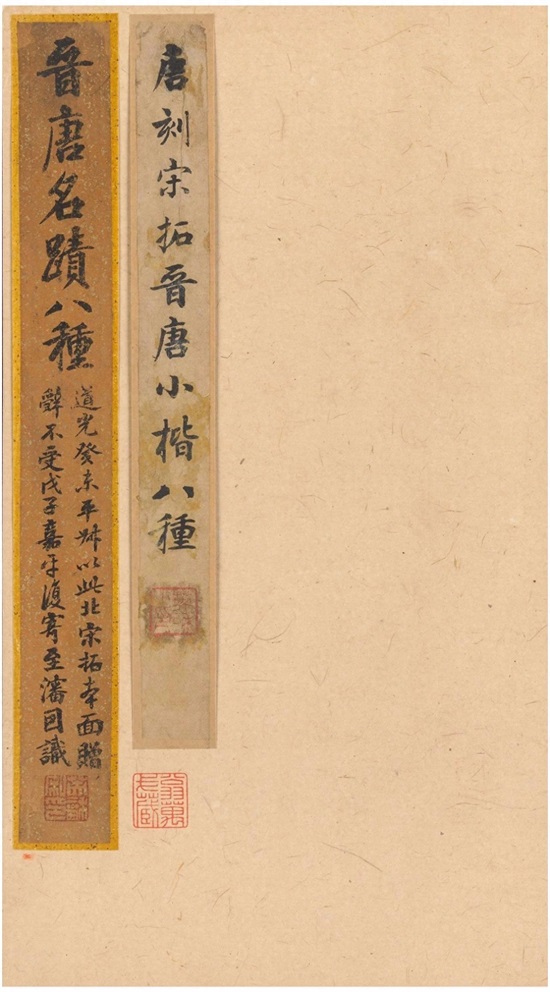 唐刻宋拓晉唐小楷八種
晉唐名蹟八種
道光癸未平叔以此北宋拓本面贈
辭不受戊子嘉平復寄至瀋因識